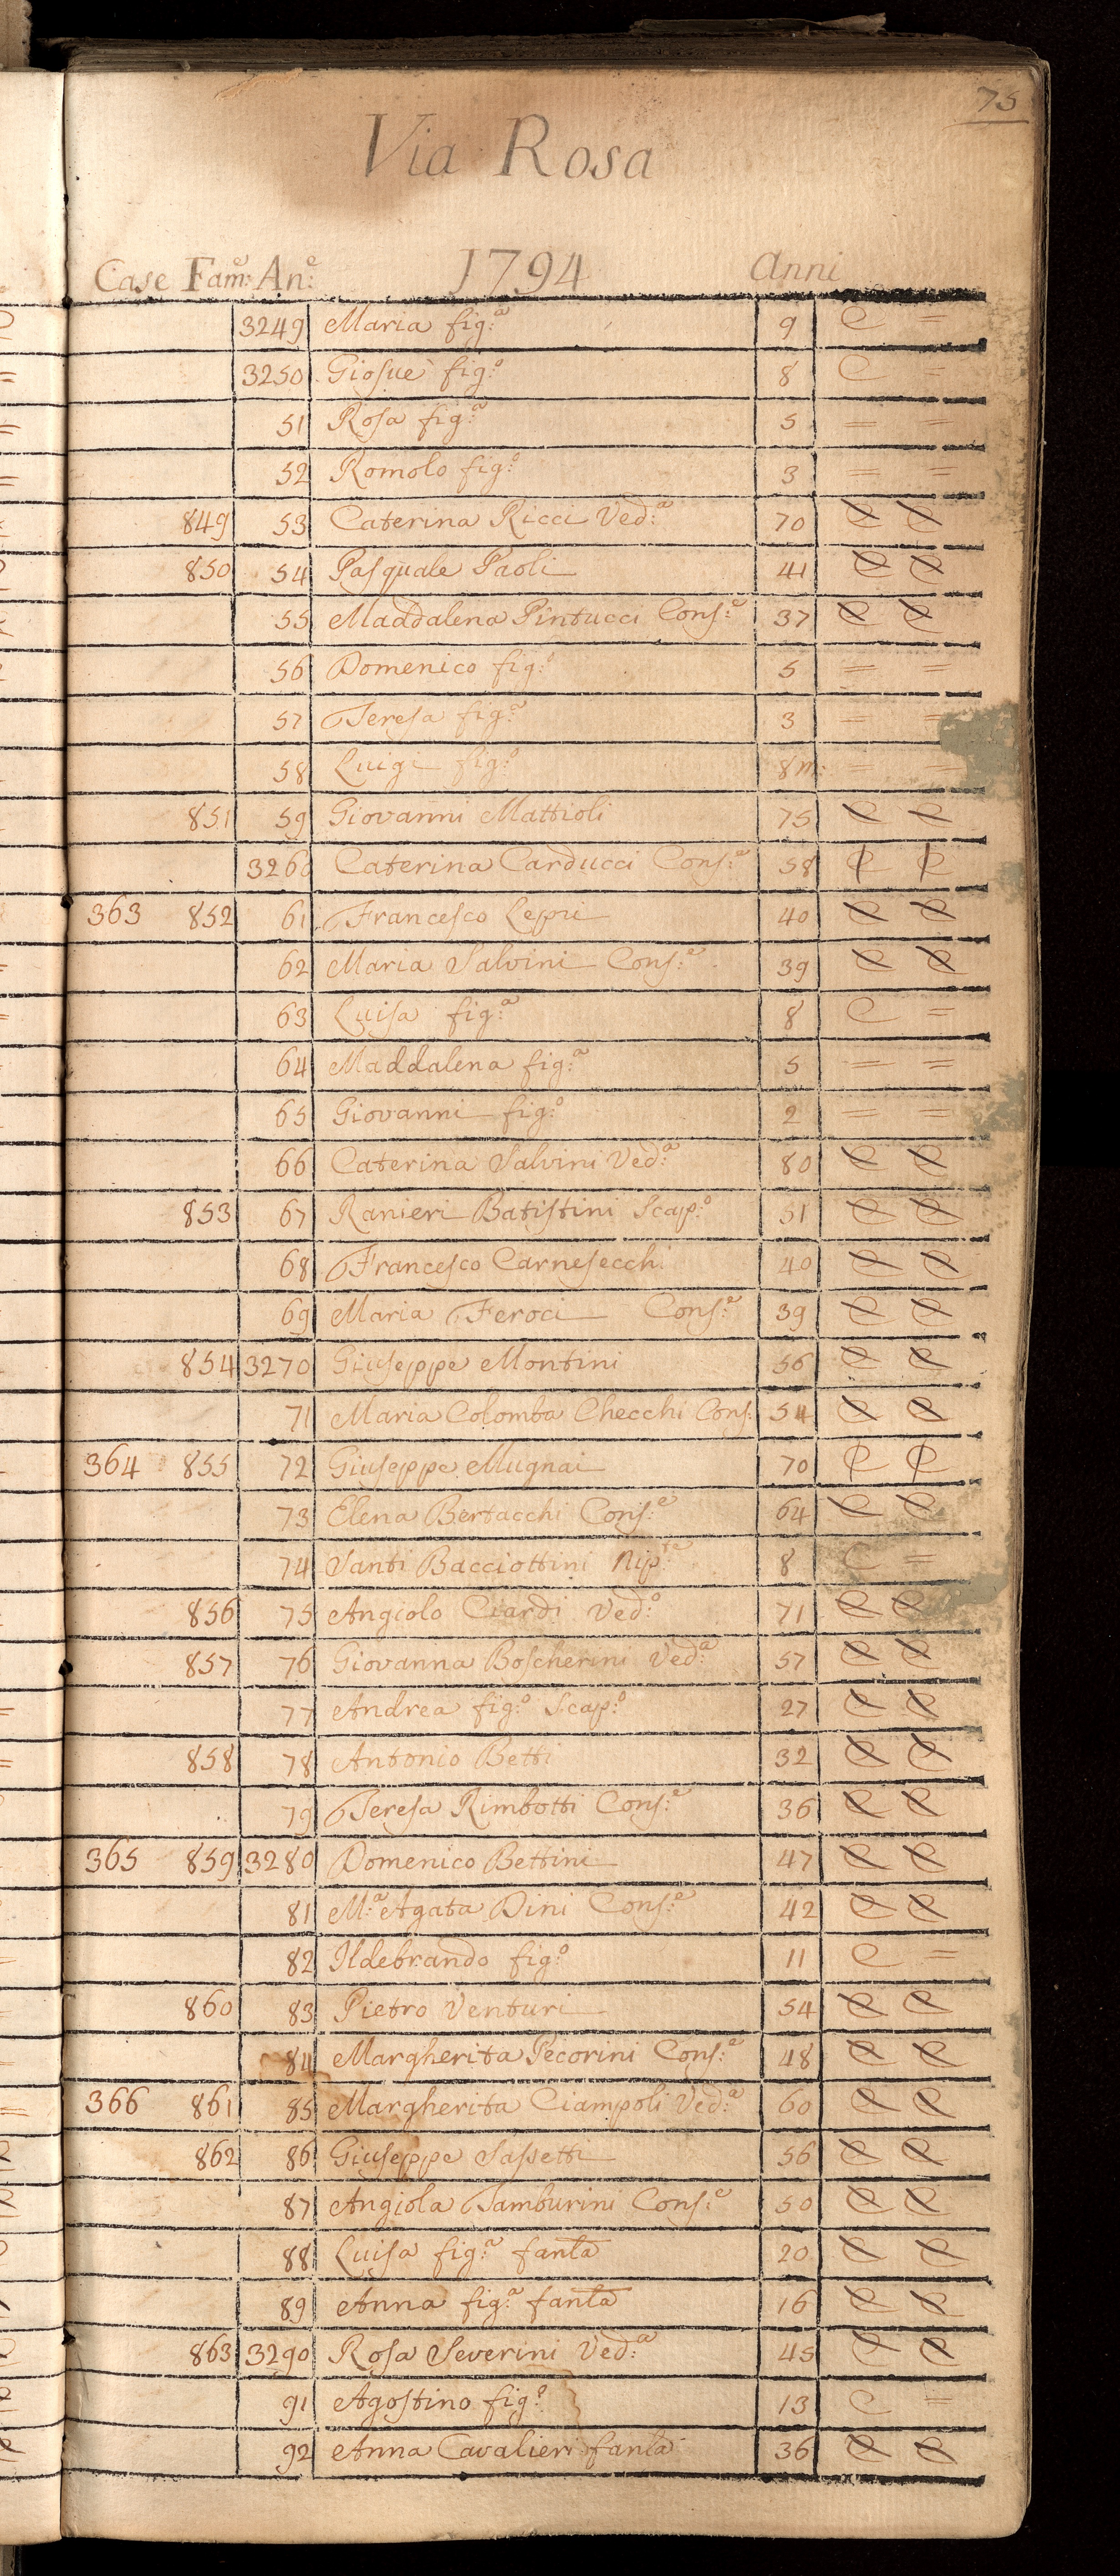 75
Via Rosa
Case Fam:e An:e 1794 Anni
3249 Maria fig:a 9 C =
3250 Giosue fig:o 8 C =
51 Rosa fig:a 5 = =
52 Romolo fig:o 3 = =
849 53 Caterina Ricci Ved:a 70 C C
850 54 Pasquale Paoli 41 C C
55 Maddalena Pintucci Cons:e 37 C C
56 Domenico fig:o 5 = =
57 Teresa fig:a 3 = =
58 Luigi fig:o 8m: = =
851 59 Giovanni Mattioli 75 C C
3260 Caterina Carducci Cons:e 58 C C
363 852 61 Francesco Lepri 40 C C
62 Maria Salvini Cons:e 39 C C
63 Luisa fig:a 8 C =
64 Maddalena fig:a 5 = =
65 Giovanni fig:o 2 = =
66 Caterina Salvini Ved:a 80 C C
853 67 Ranieri Batistini Scap:o 51 C C
68 Francesco Carnesecchi 40 C C
69 Maria Feroci Cons:e 39 C C
854 3270 Giuseppe Montini 56 C C
71 Maria Colomba Checchi Cons: 54 C C
364 855 72 Giuseppe Mugnai 70 C C
73 Elena Bertacchi Cons:e 64 C C
74 Santi Bacciottini Nip:te 8 C =
856 75 Angiolo Ciardi Ved:o 71 C C
857 76 Giovanna Boscherini Ved:a 57 C C
77 Andrea fig:o Scap:o 27 C C
858 78 Antonio Betti 32 C C
79 Teresa Rimbotti Cons:e 36 C C
365 859 3280 Domenico Bettini 47 C C
81 M:a Agata Dini Cons:e 42 C C
82 Ildebrando fig:o 11 C =
860 83 Pietro Venturi 54 C C
84 Margherita Pecorini Cons:e 48 C C
366 861 85 Margherita Ciampoli Ved:a 60 C C
862 86 Giuseppe Sassetti 56 C C
87 Angiola Tamburini Cons:e 50 C C
88 Luisa fig:a fanla 20 C C
89 Anna fig:a fanla 16 C C
863 3290 Rosa Severini Ved:a 45 C C
91 Agostino fig:o 13 C =
92 Anna Cavalieri fanla 36 C C